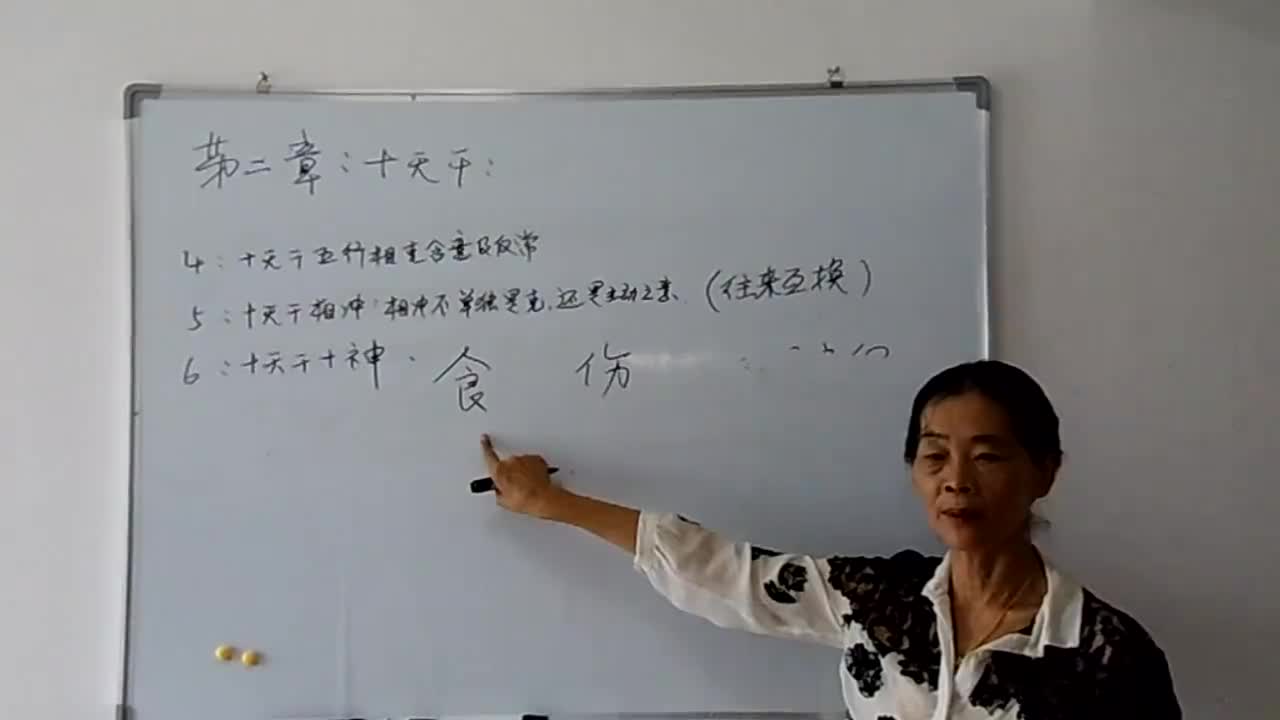 第二章：十天干：
4：十天干五行相克含意及反常
5：十天干相冲：相冲不单独是克，还是主动之意、（往来互换）
6：十天干十神、食 伤